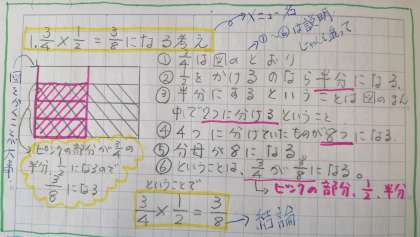 1. 3/4 × 1/2 = 3/8 になる考え
メニュー名
①~⑥は説明
① 3/4は図のとおり
② 1/2をかけるのなら半分になる。
③ 半分にするということは図のまん
中で2つに分けるということ
④ 4つに分けていたものが8つになる。
⑤ 分母が8になる
⑥ ということは、3/4が3/8になる。
ピンクの部分、1/2、半分
ピンクの部分が3/4の
半分、1/2になるので
3/8になる
ということで
3/4 × 1/2 = 3/8
結論